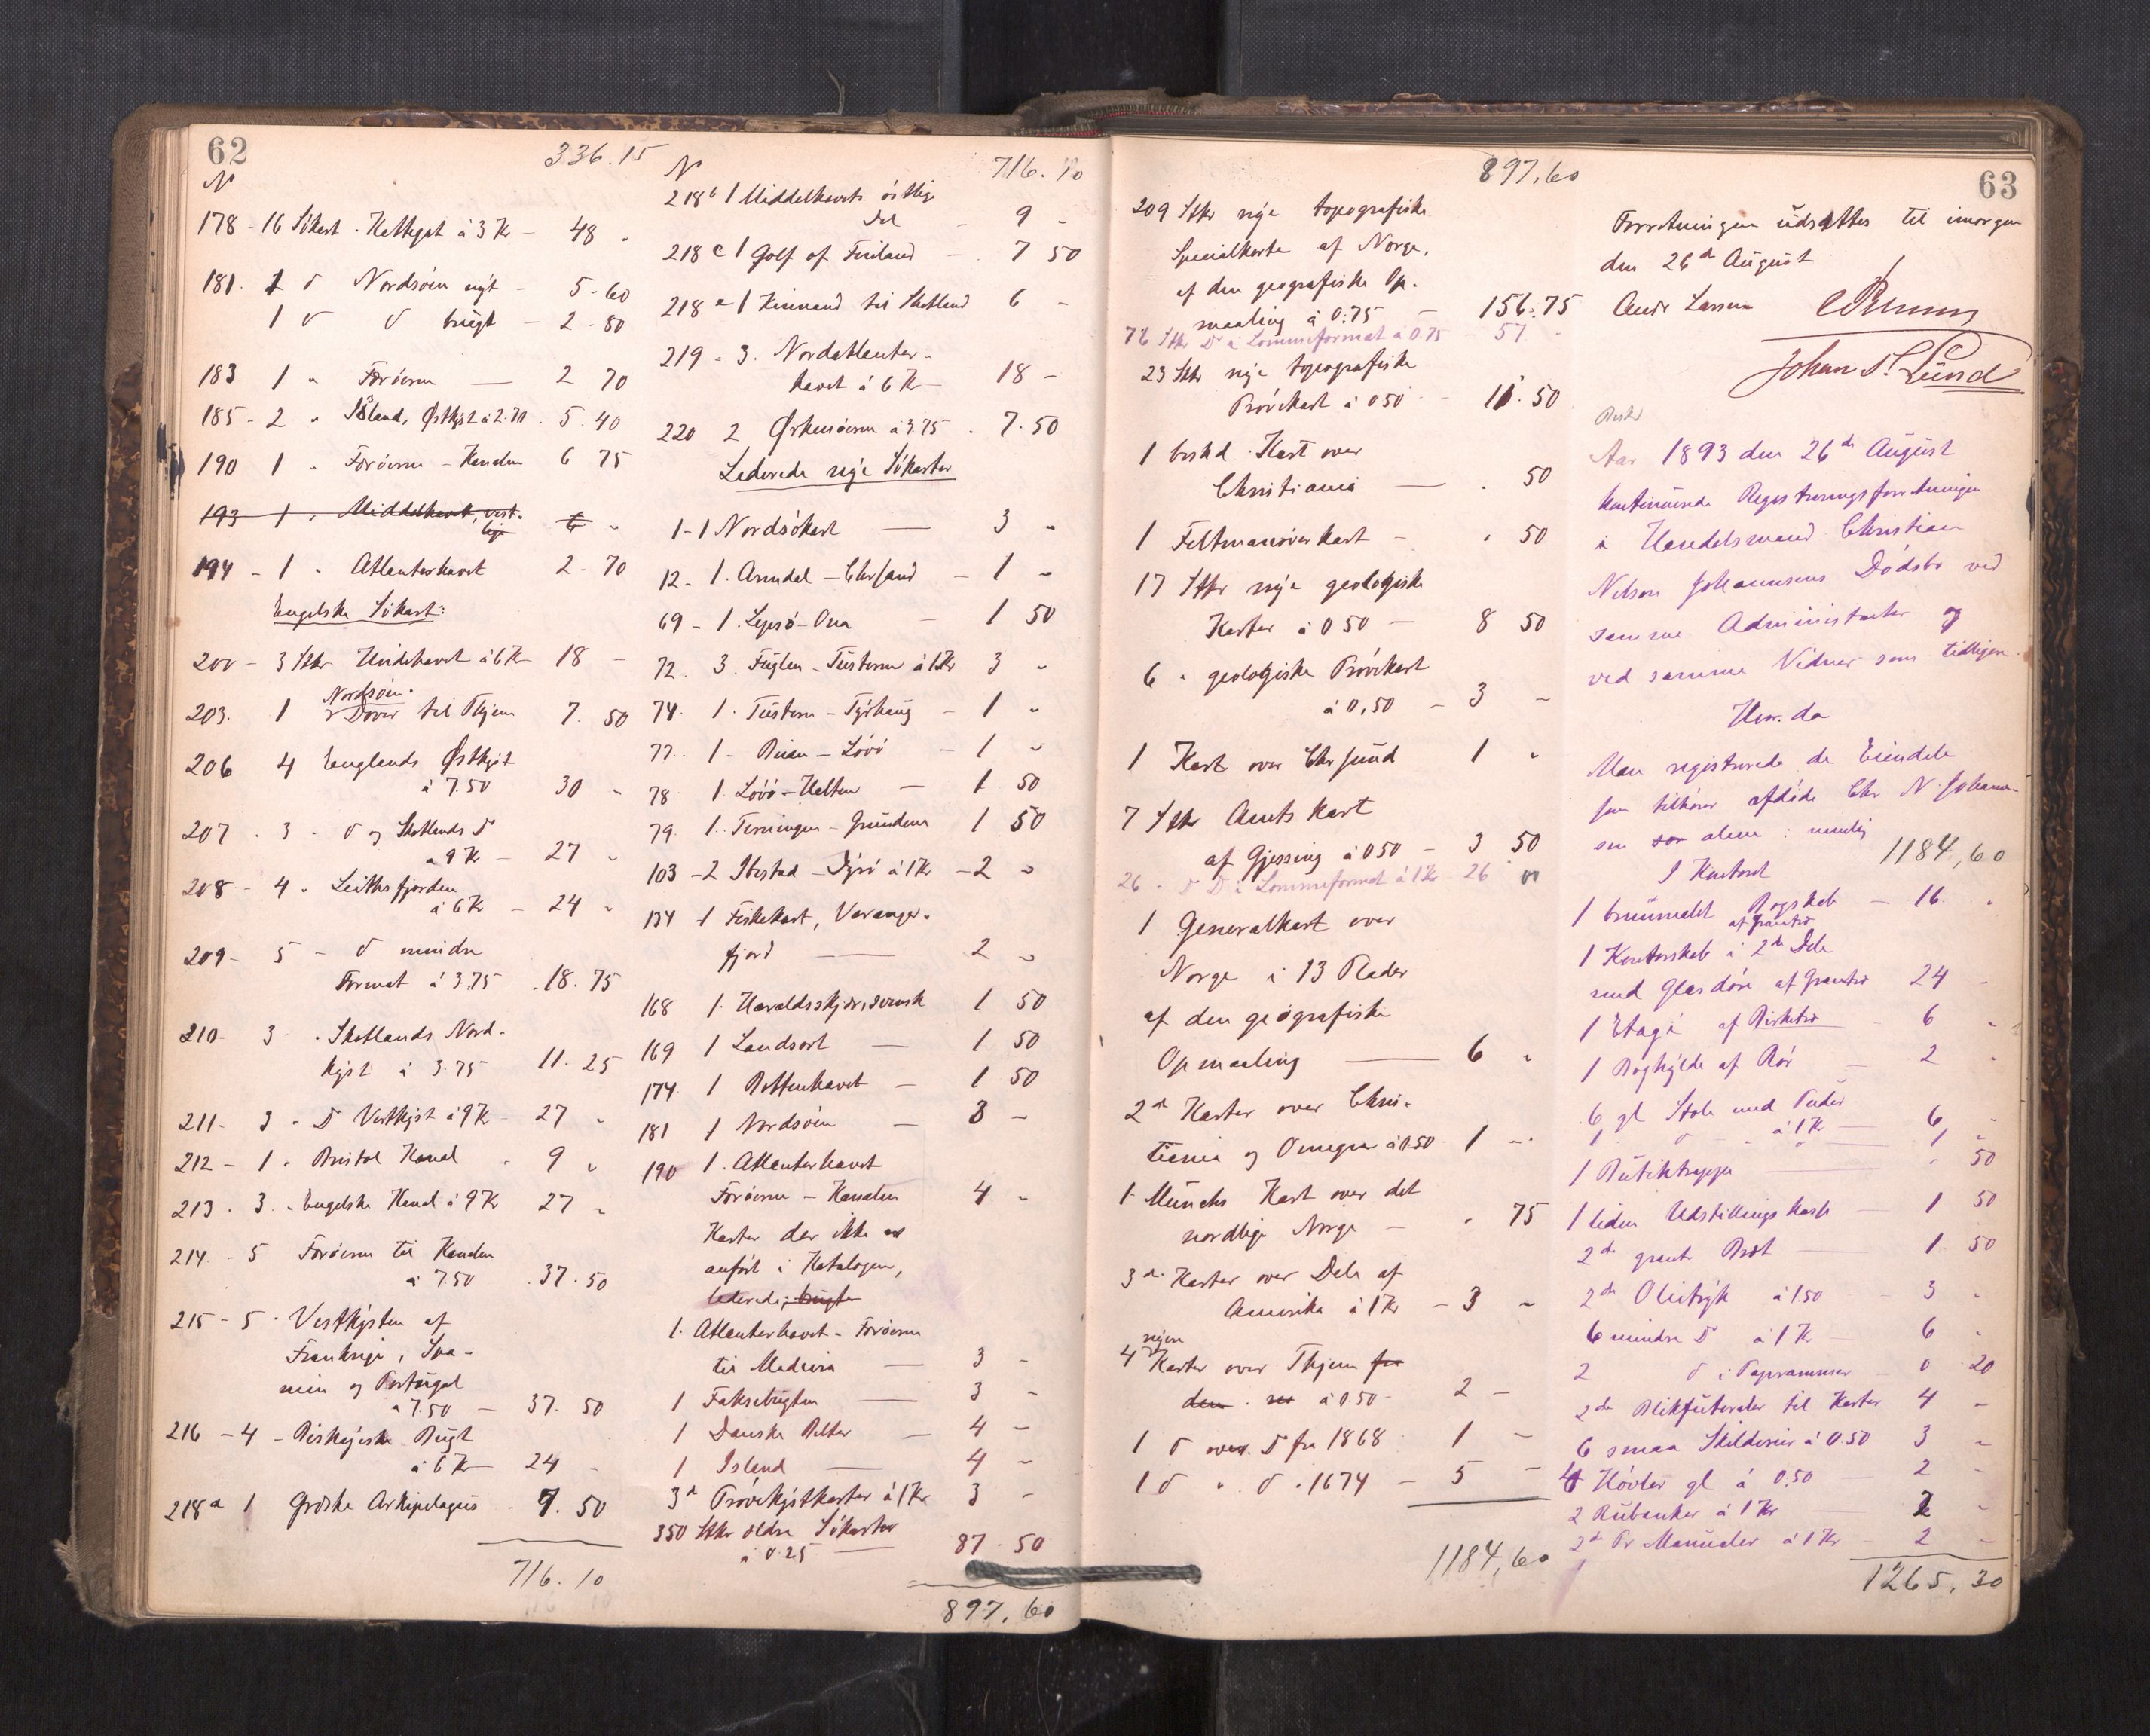 62
336.15
N
178 - 16 Sökart. Kattegat à 3 Kr - 48 "
181. 1 d Nordsöen nyt - 5-60
1 d d brugt - 2-80
183 1 " Færöerne — 2 70
185 - 2 " Island, Østkyst à 2.70 . 5.40
190 1 " Færöerne - Kanalen 6 75
193 1 " Middelhavet, vest-
lige 6 "
194 - 1 " Atlanterhavet 2-70
Engelske Sökart:
200 - 3 Stkr Hvidehavet à 6 Kr 18 -
Nordsöen.
203. 1 Dover til Thjem 7. 50
206 4 Englands Østkyst
à 7.50 30 -
207. 3 - d og Skotlands D
à 9 Kr - 27 "
208 - 4 " Leithsfjorden
à 6 Kr - 24 "
209 - 5 - d mindre
Format à 3.75 . 18.75
210 - 3 . Skotlands Nord-
kyst à 3.75 11.25
211 - 3 - D Vestkyst à 9 Kr - 27 "
212 - 1 " Bristol Kanal " 9 "
213. 3. " Engelske Kanal à 9 Kr 27 "
214 - 5 Færöerne til Kanalen
à 7.50 . 37.50
215 - 5 . Vestkysten af
Frankrige, Spa-
nien og Portugal
à 7.50 — 37. 50
216 - 4 - Biskayiske Bugt
à 6 Kr 24 -
218a 1 Græske Arkipelagus . 7.50
716.10
N
716.10
218b 1 Middelhavets östlige
Del - 9 -
218c 1 Golf of Finland - 7 50
218e 1 Kinnaird til Shetland 6 -
219 - 3. Nordatlanter-
havet à 6 Kr - 18 -
220 2 Ørkenöerne à 3.75 . 7.50
Lederede nye Sökarter
1-1 Nordsökart — 3 "
12 - 1. Arendal - Chrsand - 1 "
69 - 1. Lepsö - Ona - 1 50
72. 3. Fuglen - Tusteren à 1 Kr 3 "
74. 1. Tusteren - Tyrhaug - 1 "
77. 1 - Bian - Lövö - 1 "
78 1 Lövö - Halten - 1 50
79. 1. Terningen - Grunden 1 50
103 - 2 Ibestad - Dyrö à 1 Kr - 2 "
134 1 Fiskekart, Varanger-
fjord — 2 "
168 1. Haraldsskjær, svensk 1 50
169 1 Landsort — 1 50
174 1 Bottenhavet - 1 50
181 1 Nordsöen — 3 -
190 1. Atlanterhavet
Færöerne - Kanalen 4 "
Karter der ikke er
anfört i Katalogen,
lederede, brugte
1. Atlanterhavet - Færöerne
til Madeira — 3 -
1 Faksebugten — 3 -
1 Danske Belter — 4 -
1 Island — 4 -
3d Prövekystkarter à 1 Kr 3 -
350 Stkr ældre Sökarter
à 0.25 — 87.50
897.60
897,60
209 Stkr nye topografiske
Specialkarte af Norge,
af den geografiske Op-
maaling à 0.75 - 156.75
76 Stkr D i Lommeformat à 0.75 - 57 -
23 Stkr nye topografiske
Prövekart à 050 - 11.50
1 beskd. Kart over
Christiania — . 50
1 Feltmanöverkart - . 50
17 Stkr nye geologiske
Karter à 050 - 8 50
6 " geologiske Prövekart
à 0,50 - 3 -
1 Kart over Chrsund 1 "
7 Stkr Amtskart
af Gjessing à 050 - 3 50
26 " D D i Lommeformat à 1 Kr 26 "
1 Generalkart over
Norge i 13 Blader
af den geografiske
Opmaaling — 6 "
2d Karter over Chri-
tiania og Omegn à 0.50 - 1 -
1 Munchs Kart over det
nordlige Norge - . 75
3d. Karter over Dele af
Amerika à 1 Kr - 3 -
nyere
4 Karter over Thjem fra
den à 0.50 - 2 -
1 d over D fra 1868 1 -
1 d " d " 1674 - 5 -
1184,60
63
Forretningen udsattes til imorgen
den 26de August
Andr Larsen
Johan S. Lund
Aar 1893 den 26de August
kontinuerede Registreringsforretningen
i Handelsmand Christian
Nelson Johannesens Dödsbo ved
samme Administrator og
ved samme Vidner som tidligere.
Hvor. da
Man registrerede de Eiendele
som tilhörer afdöde Chr N Johanne-
sen alene: nemlig
I Kontoret 1184,60
1 brunmalet Bogskab — 16. "
af Grantræ
1 Kontorskab i 2de Dele
med Glasdöre af Grantræ 24 -
1 Etagé af Birketræ - 6 "
1 Boghylde af Rör — 2 "
6 gl Stole med Puder
à 1 Kr — 6 "
1 d " " — 1 "
1 Butiktrappe — " 50
1 liden Udstillingskasse — 1 50
2de grønt Bræt — 1. 50
2de Olietryk à 150 - 3 "
6 mindre D à 1 Kr — 6 "
2 d i Paprammer 0 20
2de Blikfuteraler til Karter 4 "
6 smaa Skilderier à 0.50 3 "
4 Hövler gl à 0.50 2 -
2 Rubanker à 1 Kr 2 "
2d Pr Manualer à 1 Kr 2 -
1265,30